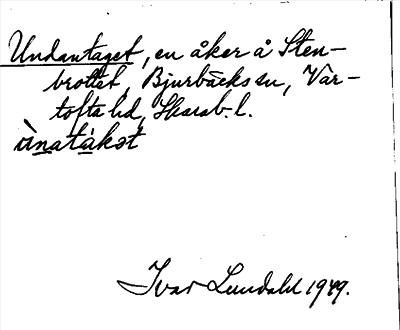 Undantaget, en åker å Sten-
brottet, Bjurbäcks sn, Var-
tofta hd, Skarab. l.
ùnatàkət
Ivar Lundahl 1949.